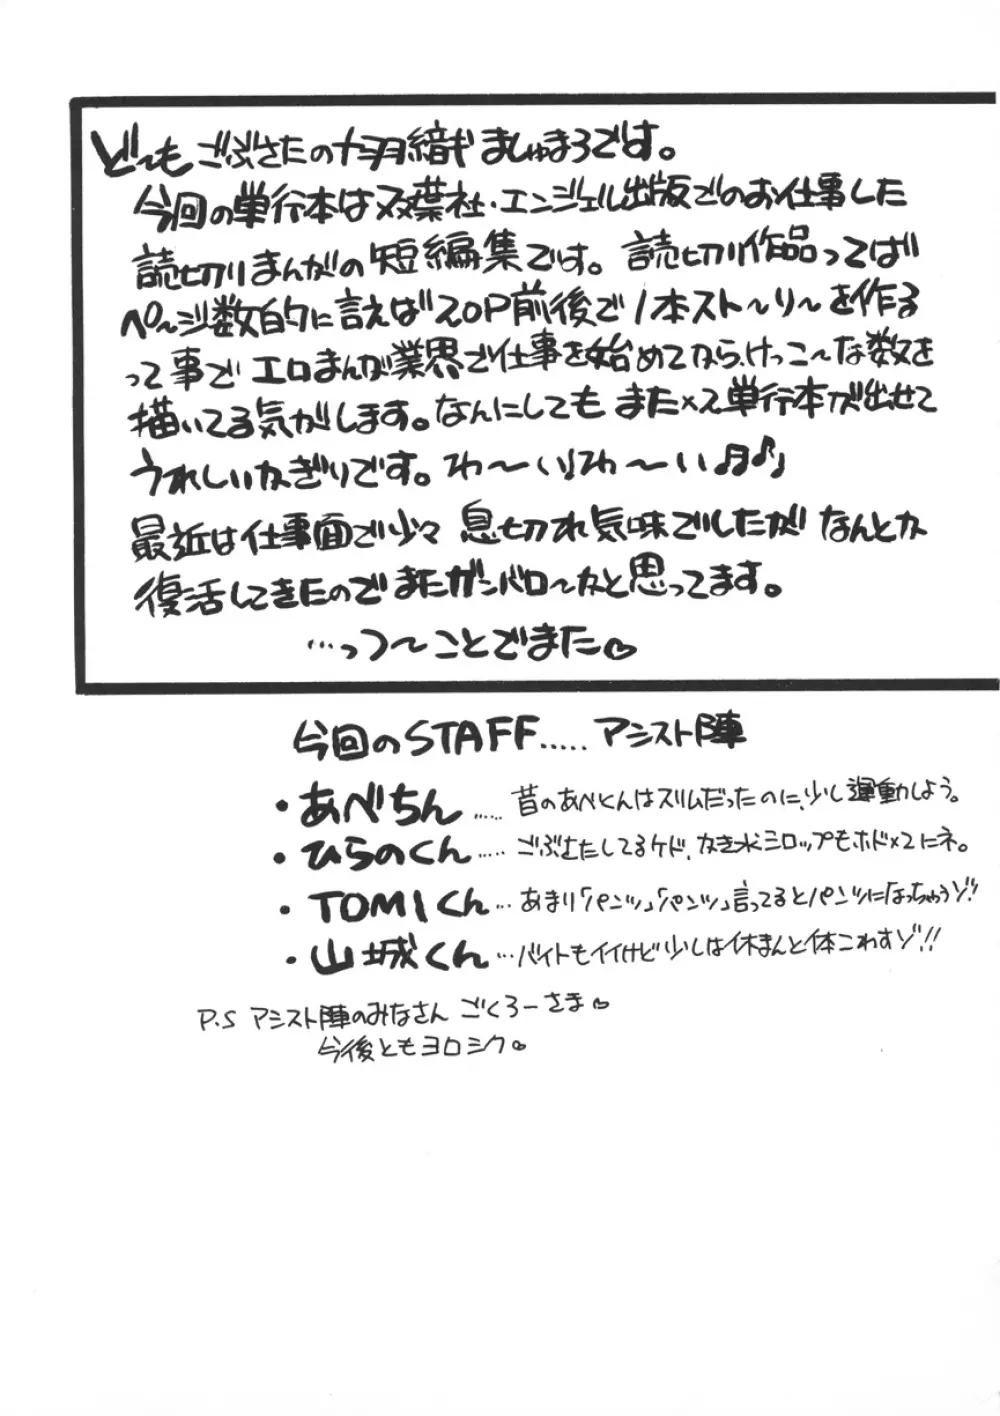 ど〜もごぶさたのナヲ織ギましゅまろです。
今回の単行本は双葉社・エンジェル出版でのお仕事した
読切りまんがの短編集です。読切り作品ってば
ペ〜ジ数的に言えば20P前後で1本スト〜リ〜を作る
って事でエロまんが業界で仕事を始めてから、けっこ〜な数を
描いてる気がします。なんにしてもまた×2単行本が出せて
うれしいかぎりです。わ〜い♪わ〜い♫♪
最近は仕事面で少々息切れ気味でしたがなんとか
復活してきたのでまたガンバロ〜かと思ってます。
…っつ〜ことでまた♡
今回のSTAFF.....アシスト陣
・あべちん……昔のあべくんはスリムだったのに、少し運動しよう。
・ひらのくん.....ごぶさたしてるケド、かき氷シロップもホド×2にネ。
・TOMIくん…あまり「パンツ」「パンツ」言ってるとパンツになっちゃうゾ!!
・山城くん…バイトもイイけど少しは休まんと体こわすゾ!!
P.S アシスト陣のみなさん ごくろーさま♡
今後ともヨロシク♡